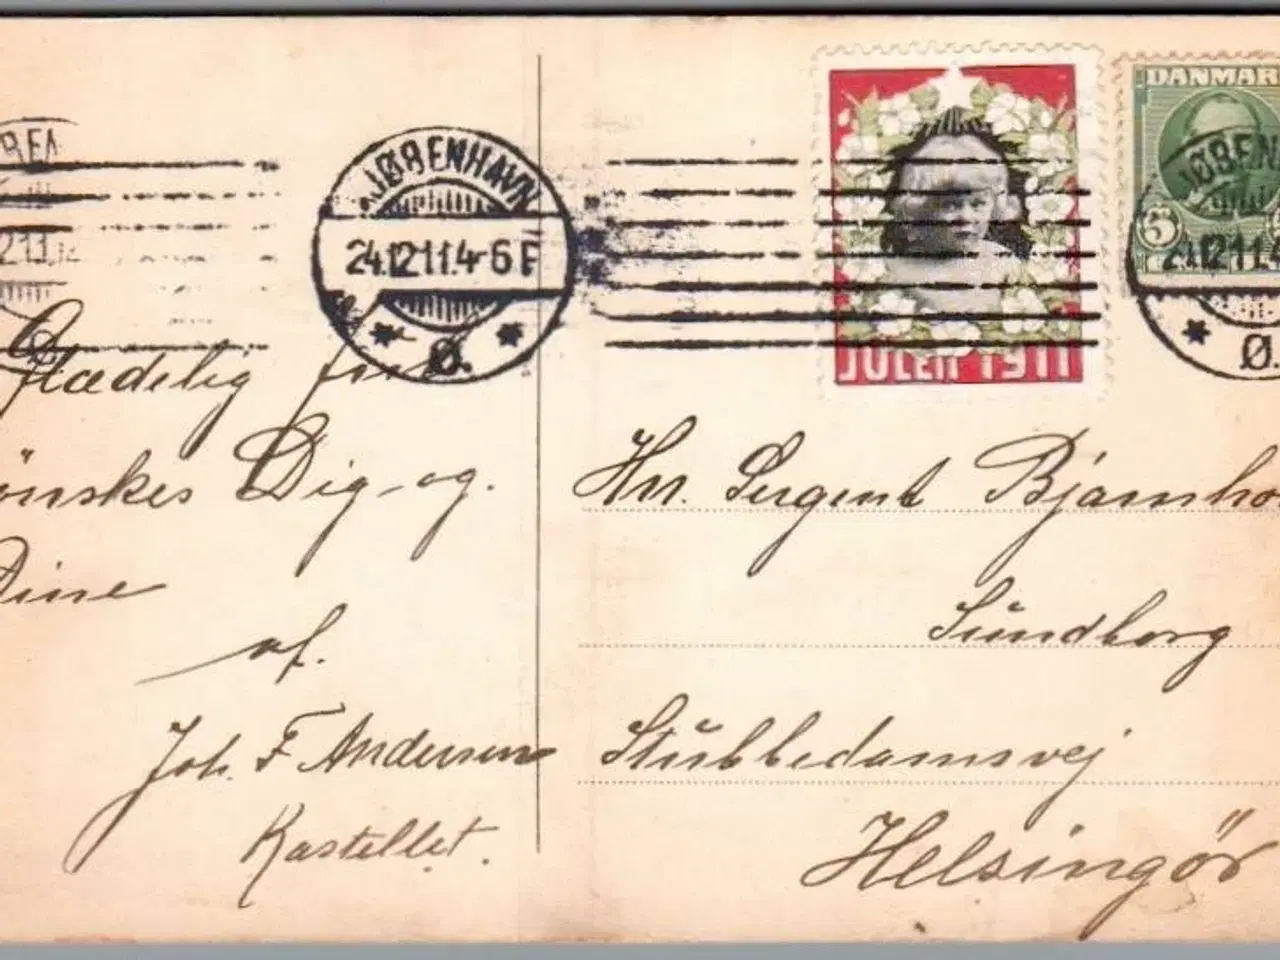 KJØBENHAVN
24.12.11.4-6 E
Ø.
JULEN 1911
DANMAR
5
JØBEN
24.12.11.4
Ø.
Glædelig Jul
ønskes Dig og.
Dine
af.
Joh. F Andersen
Kastellet.
Hr. Sergent Bjarnho
Sundborg
Stubbedamsvej
Helsingör